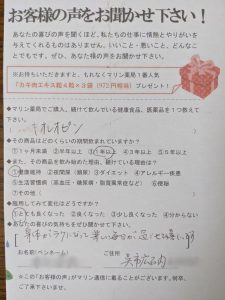 お客様の声をお聞かせ下さい!
あなたの喜びの声を聞くほど、私たちの仕事に情熱とやりがいを
与えてくれるものはありません。いいこと・悪いこと、どんなこ
とでもです。ぜひ、あなた様の声をお聞かせ下さい。
※お持ちいただきますと、もれなくマリン薬局1番人気
「カキ肉エキス粒4粒×3袋(972円相当)プレゼント!
◆マリン薬局でご購入、続けて飲んでいる健康食品、医薬品を1つ教えて
下さい。
オレオピン
◆その商品はどのくらいの期間飲まれていますか?
①1ヶ月未満 ②半年以上 ③1年以上 ④3年以上 ⑤5年以上
◆また、その商品を飲み始めた理由、続けている理由は?
①健康維持 ②夜間尿(頻尿) ③ダイエット ④アレルギー疾患
⑤生活習慣病(高血圧・糖尿病・脂質異常症など) ⑥便秘
⑦その他
◆服用してみて変化はどうですか?
①とても良くなった ②良くなった ③少し良くなった ④分からない
◆あなたの気持ちをぜひお聞かせ下さい。
身体がラクになって
毎日が
お名前(ペンネーム)
ご住所
呉市広古内
※この「お客様の声」がマリン通信に載ることがございます。何卒、
ご了承下さいませ。